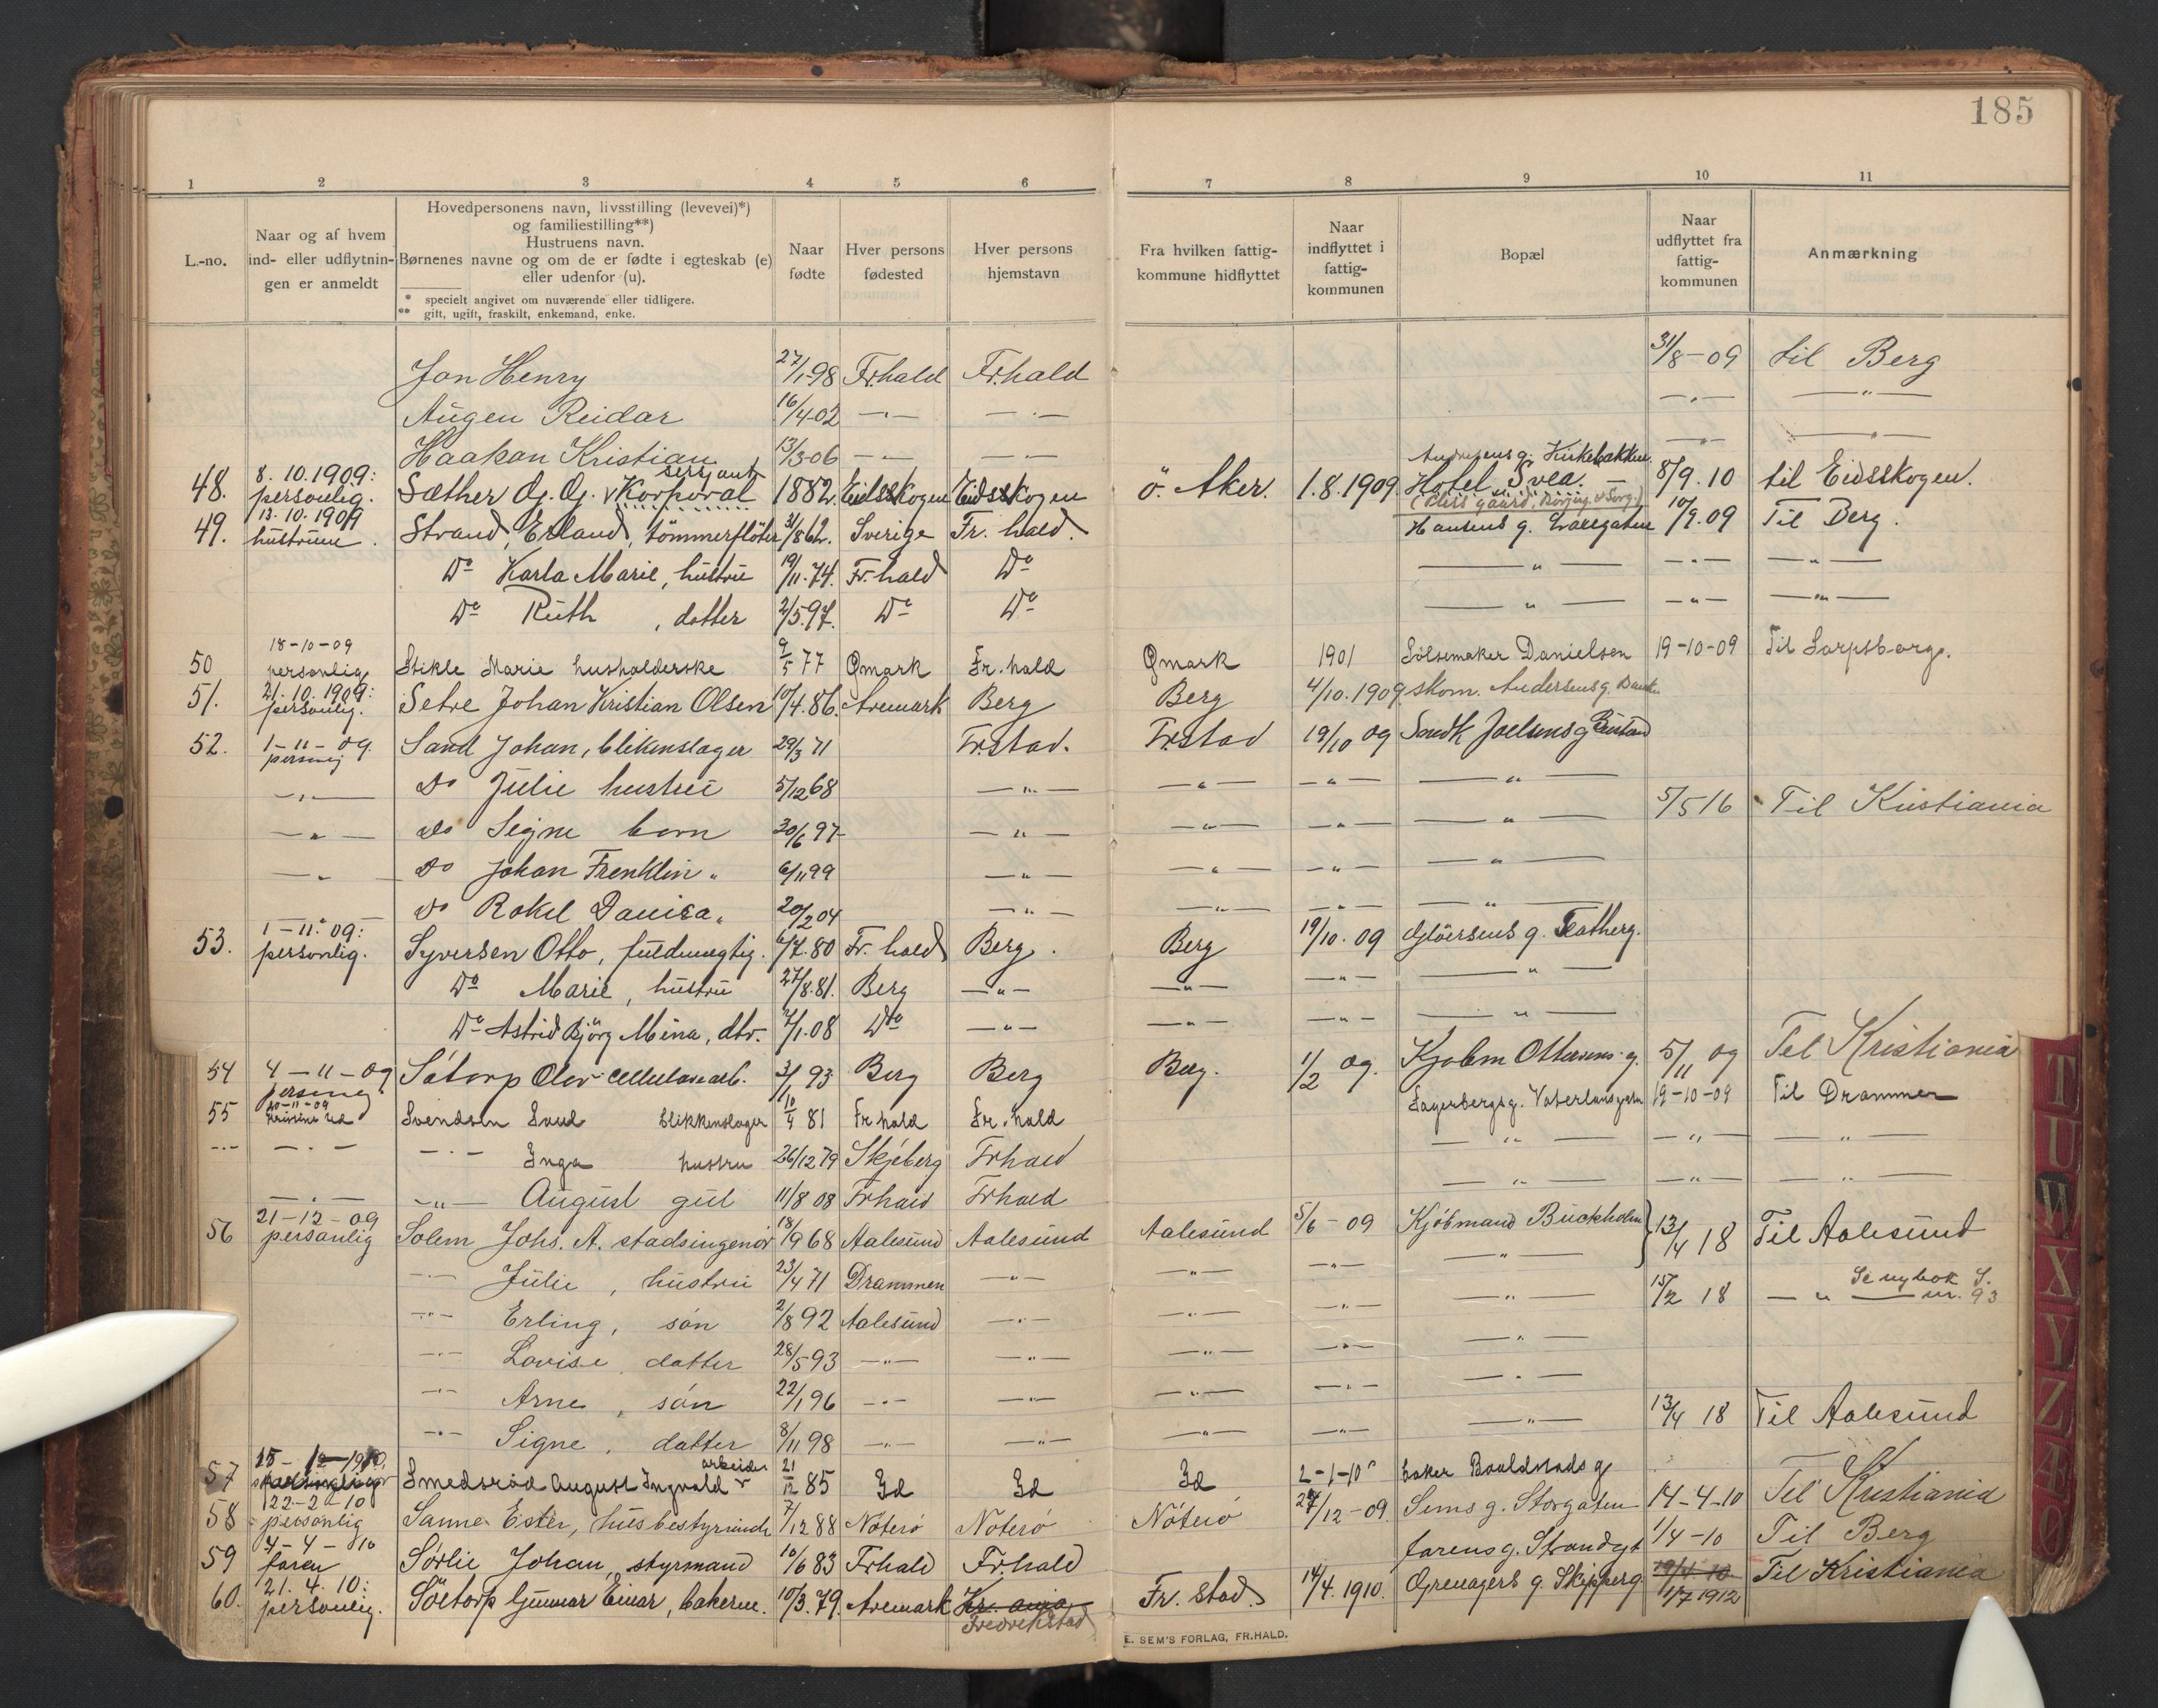 185
1 2 3 4 5 6 7 8 9 10 11
L.-no.
Naar og af hvem ind- eller udflytnin- gen er anmeldt
Hovedpersonens navn, livsstilling (levevei)*)
og familiestilling**)
Hustruens navn.
Børnenes navne og om de er fødte i egteskab (e)
eller udenfor (u).
* specielt angivet om nuværende eller tidligere.
** gift, ugift, fraskilt, enkemand, enke.
Naar fødte
Hver persons fødested
Hver persons hjemstavn
Fra hvilken fattig- kommune hidflyttet
Naar indflyttet i fattig- kommunen
Bopæl
Naar udflyttet fra fattig- kommunen
Anmærkning
Jon Henry 27/1-98 Fr.hald Fr.hald 31/8-09 til Berg
Augen Reidar 16/4-02 —„— —„— —„— —„—
Haakon Kristian 13/3-06 —„— —„— —„— —„—
48. 8.10.1909: personlig. Sæther O. O. Korporal sersjant 1882. Eidsskogen Eidsskogen ö. Aker. 1.8.1909 Kirkebakken Hotel Svea. 8/9.10 til Eidsskogen.
49. 13.10.1909 hustruen. Strand, Erland, tömmerflöter 31/8 62. Sverige Fr. hald. Hansens g. 10/9.09 Til Berg.
Do Karla Marie, hustru 19/11.74. Fr. hald Do —„— —„— —„—
Do Ruth, datter 2/5.97. Do Do —„— —„— —„—
50 18-10-09 personlig Stikle Marie husholderske 9/5 77 Ømark Fr. hald Ømark 1901 Sölvsmaker Danielsen 19-10-09 Til Sarpsborg.
51. 21.10.1909: personlig. Setre Johan Kristian Olsen 10/4.86. Aremark Berg Berg 4/10.1909. skom. Andersens g.
52. 1-11-09. Sand Johan, blikenslager 29/3 71 Fr.stad. Fr.stad 19/10 09 Joelsens g
—„— Do Julie hustru 5/12 68 —„— —„— —„— —„— 5/5 16 Til Kristiania
—„— Do Signe barn 30/6 97 —„— —„— —„— —„—
—„— Do Johan Frenklin „ 6/11 99 —„— —„— —„— —„—
—„— Do Rakel „ 20/2 04 —„— —„— —„— —„—
53. 1-11-09: personlig. Syversen Otto, fuldmægtig. 6/7.80 Fr. hald Berg. Berg 19/10.09 Glöersens g.
Do Marie, hustru 27/8.81. Berg —„— —„— —„— —„—
Do Astrid Björg Mina, dtr. 7/1.08 Do —„— —„— —„— —„—
54 4-11-09 Såtorp Olav cellulosearb. 3/1 93 Berg Berg Berg. 1/2 09. Kjøbm Ottersens g. 5/11 09 Til Kristiania
55 20-11-09 Svendsen blikkenslager 10/4 81 Fr hald Fr. hald Lagerbergs g. 19-10-09 Til Drammen
—„— —„— —„— Inga hustru 26/12 79 Skjeberg Frhald —„— —„— —„—
—„— —„— August gut 11/8 08 Frhald Frhald —„— —„— —„—
56 21-12-09 personlig Solem Johs. A. stadsingeniör 18/9 68 Aalesund Aalesund Aalesund 5/6-09 Kjöbmand Buckholm 13/4 18 Til Aalesund
—„— Julie, hustru 23/4 71 Drammen —„— —„— —„— —„—
—„— Erling, sön 2/8 92 Aalesund —„— —„— —„— —„— 15/2 18 —„— Se ny bok S. nr. 93
—„— Lovise, datter 28/5 93 —„— —„— —„— —„— —„—
—„— Arne, sön 22/1 96 —„— —„— —„— —„— —„—
—„— Signe, datter 8/11 98 —„— —„— —„— —„— —„— 13/4 18 Til Aalesund
57 Smedsröd August Ingvald arbeider 21/12 85 Id Id Id 2-1-10 baker g
58 22-2-10 personlig Sanne Ester, husbestyrinde 7/12 88 Nöterö Nöterö Nöterö 27/12-09. Sems g. Storgaten 14-4-10 Til Kristiania
59 4-4-10 faren Sörlie Johan, styrmand 10/6 83 Frhald Fr.hald farens g. Strandgt 1/4-10 Til Berg
60. 21.4.10: personlig. Söetorp Gunnar Einar, bakersv. 10/3.79. Aremark Kr. ania Fredrikstad Fr. stad. 14/4.1910. Grenagers g. Skipperg. 19/4.10 11/7 1912 Til Kristiania
E. SEM'S FORLAG, FR.HALD.
T U W X Y Z Æ Ø